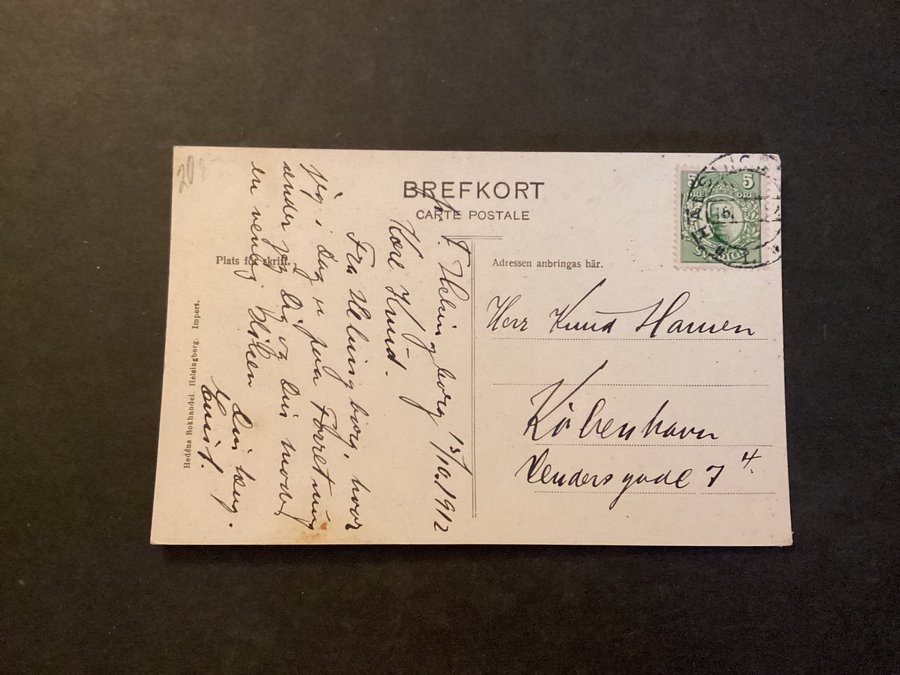 BREFKORT
CARTE POSTALE
Plats för skrift.
Adressen anbringas här.
5 5
Herr Knud Hansen
København
Vendersgade 7 4.
Helsingborg 15/10. 1912
Kære Knud.
Fra Helsingborg, hvor
jeg i Dag er paa Forretning
sender jeg Dig og Din moder
en venlig Hilsen
Din
Hedéns Bokhandel. Helsingborg. Import.